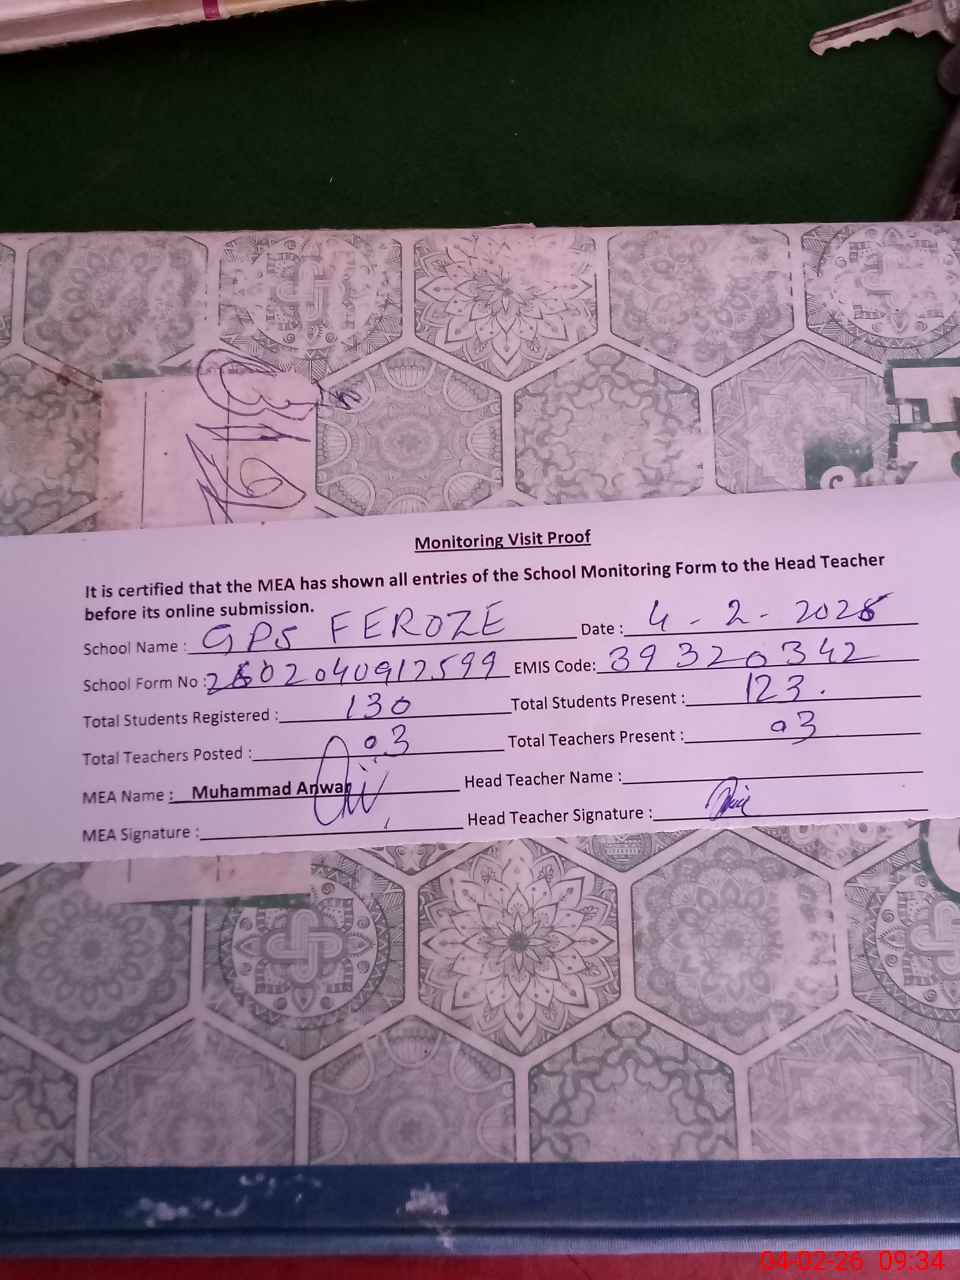 Monitoring Visit Proof
It is certified that the MEA has shown all entries of the School Monitoring Form to the Head Teacher
before its online submission.
School Name : GPS FEROZE Date : 4 - 2 - 2026
School Form No : 2602040912599 EMIS Code: 39320342
Total Students Registered : 130 Total Students Present : 123.
Total Teachers Posted : 03 Total Teachers Present : 03
MEA Name : Muhammad Anwar Head Teacher Name :
MEA Signature : Head Teacher Signature :
04-02-26 09:34